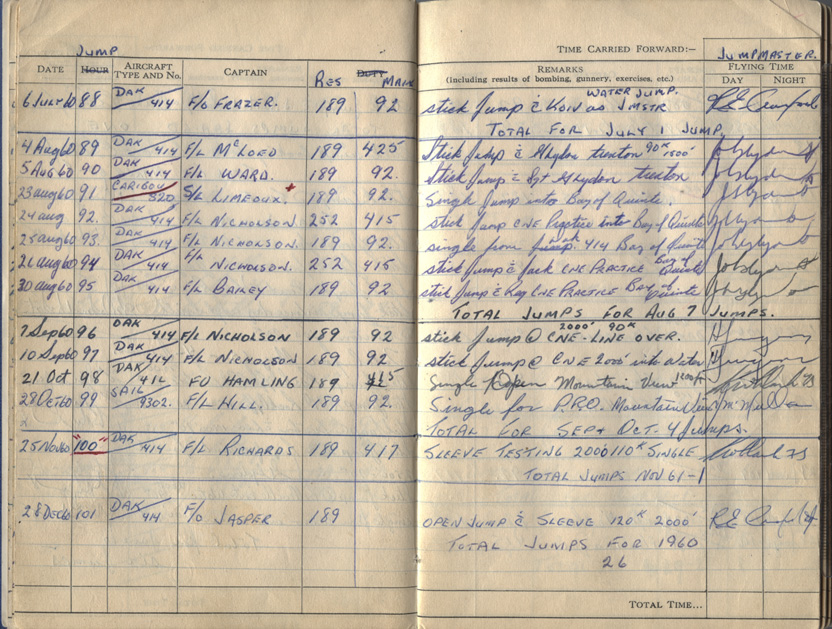 JUMP
TIME CARRIED FORWARD:–
JUMPMASTER.
DATE HOUR AIRCRAFT TYPE AND No. CAPTAIN RES DUTY MAIN REMARKS (including results of bombing, gunnery, exercises, etc.) FLYING TIME DAY NIGHT
WATER JUMP.
6 July 60 88 DAK 414 F/O FRAZER. 189 92 stick Jump c̄ as JMSTR
TOTAL FOR JULY 1 JUMP.
4 Aug 60 89 DAK 414 F/L McLOED 189 425 Stick Jump c̄ Trenton 90K 1500'
5 Aug 60 90 DAK 414 F/L WARD. 189 92 Stick Jump c̄ Sgt Trenton
23 aug 60 91 CARIBOU 320 S/L LIMEOUX. 189 92. Single Jump into Bay of Quinte.
24 aug 92. DAK 414 F/L NICHOLSON 252 415 stick Jump CNE Practice into Bay of Quinte
25 aug 60 93. DAK 414 F/L NICHOLSON. 189 92. single from 414 Bay of Quinte
aug 60 94 DAK 414 F/L NICHOLSON. 252 415 stick Jump c̄ Jack CNE PRACTICE Bay of Quinte
30 aug 60 95 DAK 414 F/L BAILEY 189 92 stick Jump c̄ Ray CNE PRACTICE Bay of Quinte
TOTAL JUMPS FOR AUG 7 JUMPS.
7 Sep 60 96 DAK 414 F/L NICHOLSON 189 92 stick Jump @ CNE. LINE OVER. 2000' 90K
10 Sep 60 97 DAK 414 F/L NICHOLSON 189 92 stick Jump @ CNE 2000' into Water
21 Oct 98 DAK 414 HAMLING 189 415 Single Open Mountain View
28 Oct 60 99 9302. F/L HILL. 189 92. Single for P.R.O. Mountain View
TOTAL FOR SEPT OCT. 4 Jumps.
25 Nov 60 "100" DAK 414 F/L RICHARDS 189 417 SLEEVE TESTING 2000' 10K SINGLE
TOTAL JUMPS NOV 61–1
28 Dec 60 101 DAK 414 F/O JASPER 189 OPEN JUMP c̄ SLEEVE 120K 2000'
TOTAL JUMPS FOR 1960
26
TOTAL TIME...